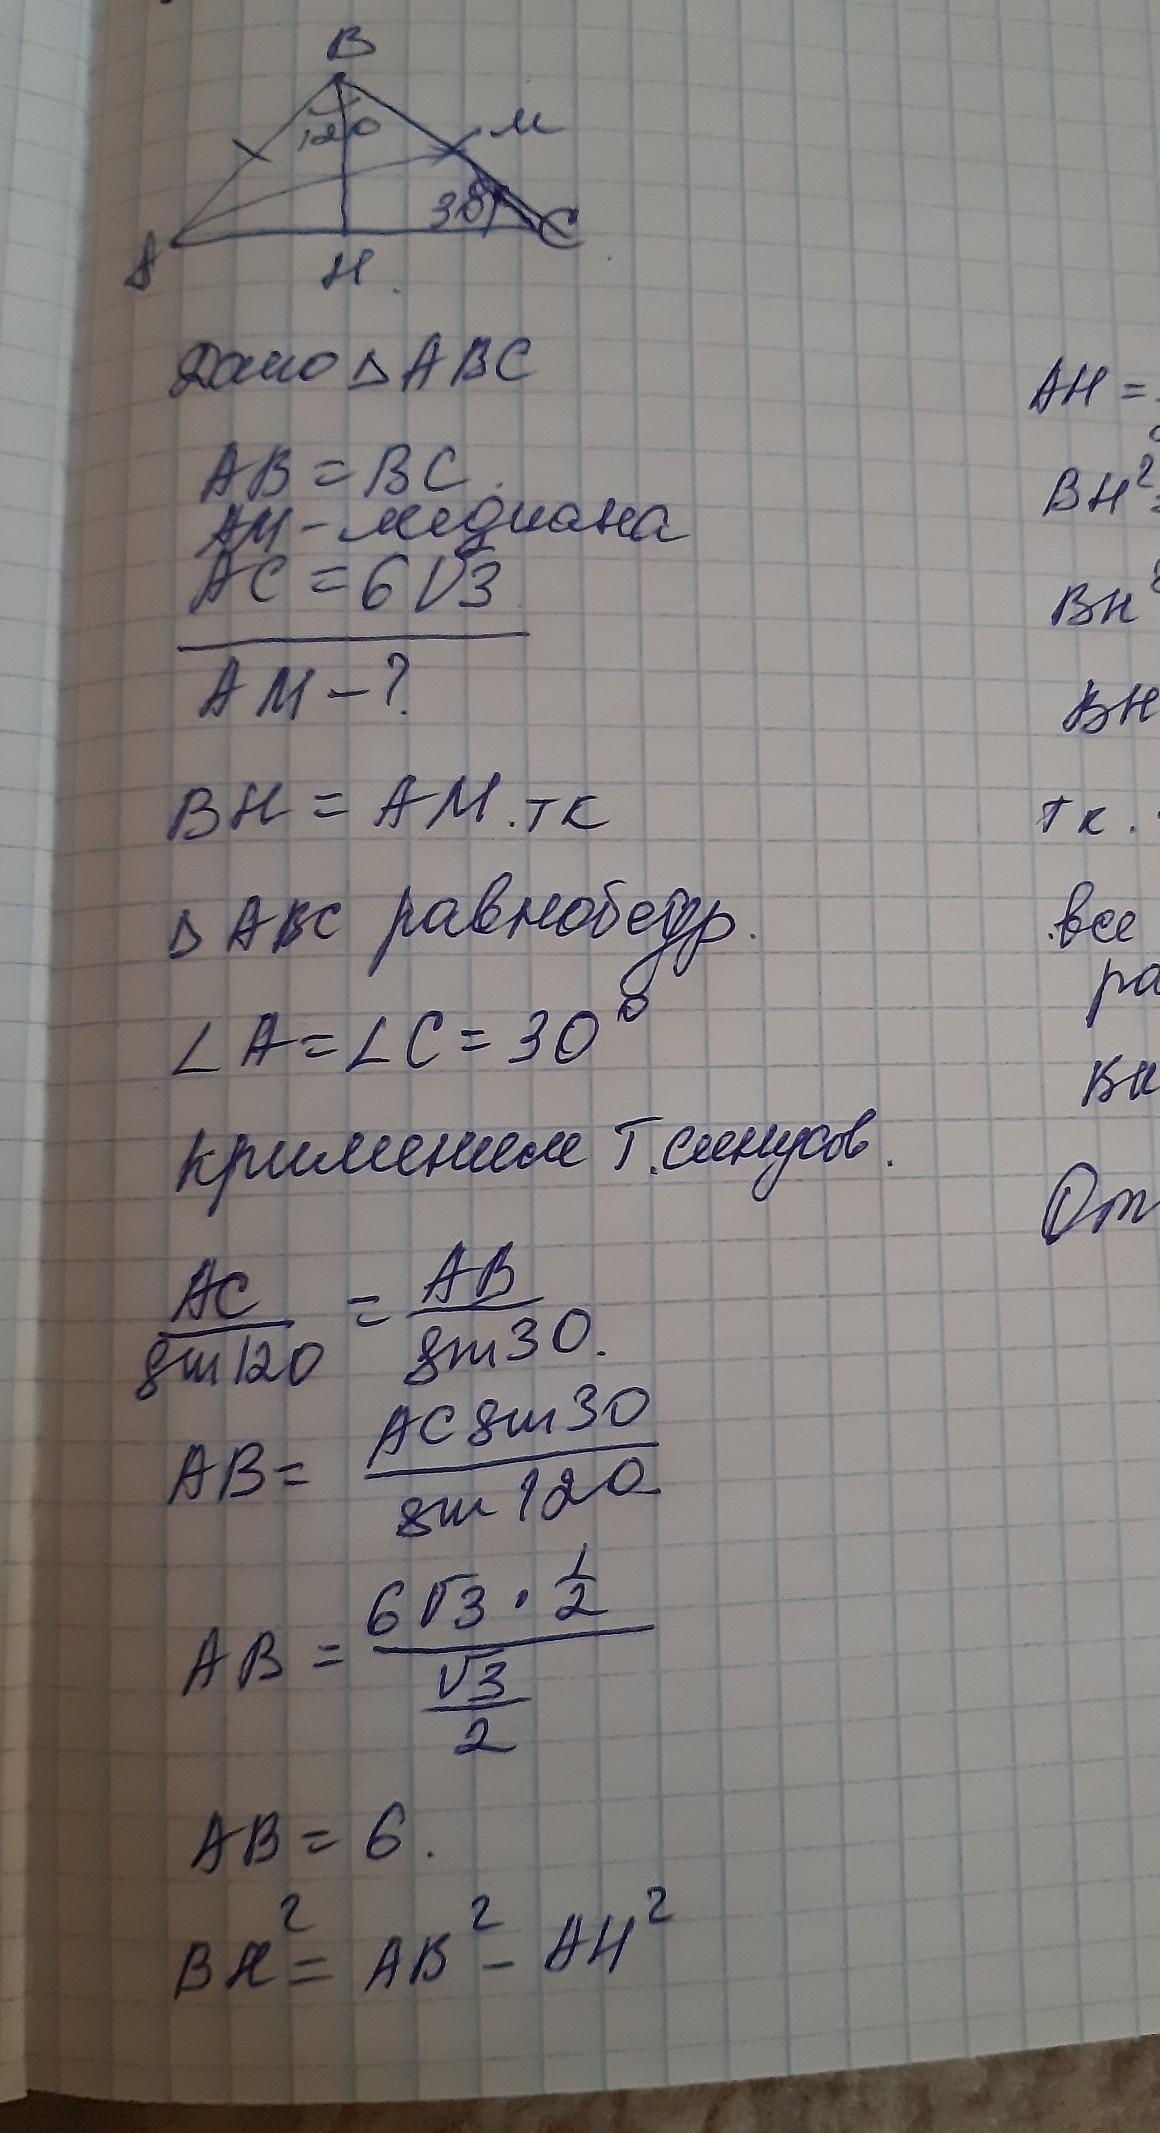 B
120
M
30°
A
H.
C
Дано △ ABC
AB = BC.
AM - медиана
AC = 6√3
AM - ?
BH = AM. тк
△ ABC равнобедр.
∠A = ∠C = 30°
применяем Т. синусов.
AC/sin120 = AB/sin30.
AB = AC sin30/sin120
AB = 6√3 · 1/2 / √3/2
AB = 6.
BH² = AB² - AH²
AH =
BH²=
BH²
BH
Тк.
все
ра
BH
От